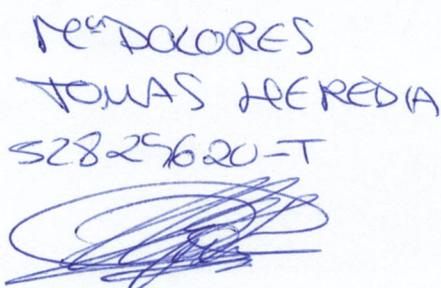 Mª DOLORES
TOMAS HEREDIA
52829620-T